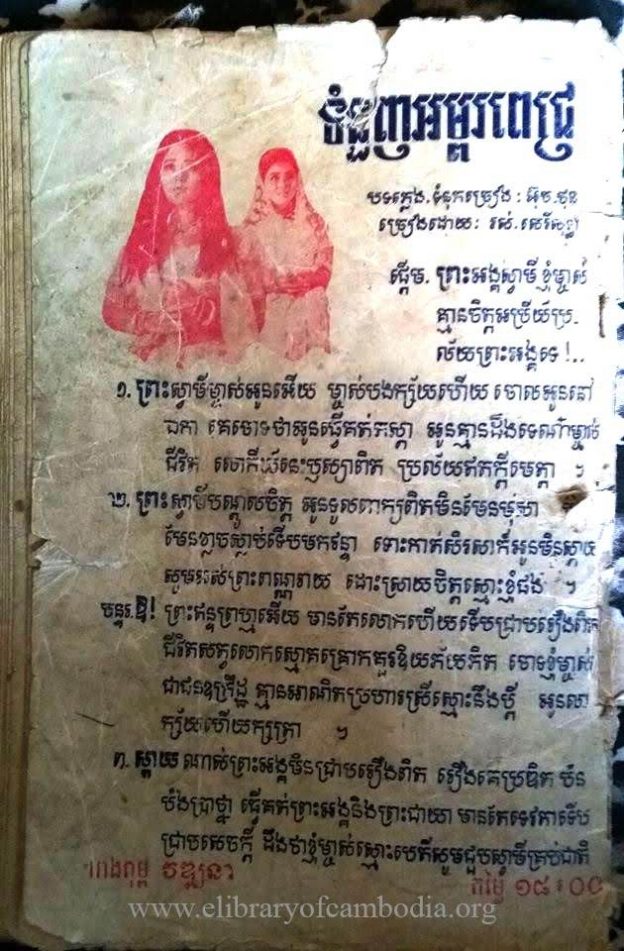 ទំនួញអម្ពរពេជ្រ
បទភ្លេង.ទំនុកច្រៀង :
ច្រៀងដោយ: រស់.សេរីសុទ្ធា
ផ្ដើម. ព្រះអង្គស្វាមីខ្ញុំម្ចាស់
គ្មានចិត្តអប្រីយ៍ប្រ-
ល័យព្រះអង្គទេ !..
១. ព្រះស្វាមីម្ចាស់អូនអើយ ម្ចាស់បងក្ស័យហើយ ចោលអូននៅ
ឯកា គេចោទថាអូនធ្វើគត់ អូនគ្មានដឹងទេណាម្ចាស់
ជីវិត លោកីយ៍នេះឫស្យាពិត ប្រល័យឥតក្ដីមេត្តា ។
២. ព្រះស្វាមីបណ្ដូលចិត្ត អូនទូលពាក្យពិតមិនមែនមុសា
មែនខ្លាចស្លាប់ទើបមករៀន្ទា ទោះកាត់សិរសាក៏អូនមិនស្ដាយ
សូម ដោះស្រាយចិត្តស្មោះខ្ញុំផង ។
បន្ទរ. ឱ! ព្រះឥន្ទព្រហ្មអើយ មានតែលោកហើយទើបជ្រាបរឿងពិត
ជីវិតសត្វលោកស្មោគគ្រោកគួរឱ្យភ័យភិត ចោទខ្ញុំម្ចាស់
ជាជនឧក្រិដ្ឋ គ្មានអាណិតប្រហារស្រីស្មោះនឹងប្ដី អូនលា
ក្ស័យហើយក្សត្រា ។
៣. ស្ដាយ ណាស់ព្រះអង្គមិនជ្រាបរឿងពិត រឿងគេប្រឌិត
បំប៉ងប្រាថ្នា ធ្វើគត់ព្រះអង្គនិងព្រះជាយា មានតែទេវតាទើប
ជ្រាបសេចក្ដី ដឹងថាខ្ញុំម្ចាស់ស្មោះបេតីសូមជួបស្វាមីគ្រប់ជាតិ
រោងពុម្ព វឌ្ឍនា
តម្លៃ ១៨:០០
www.elibraryofcambodia.org